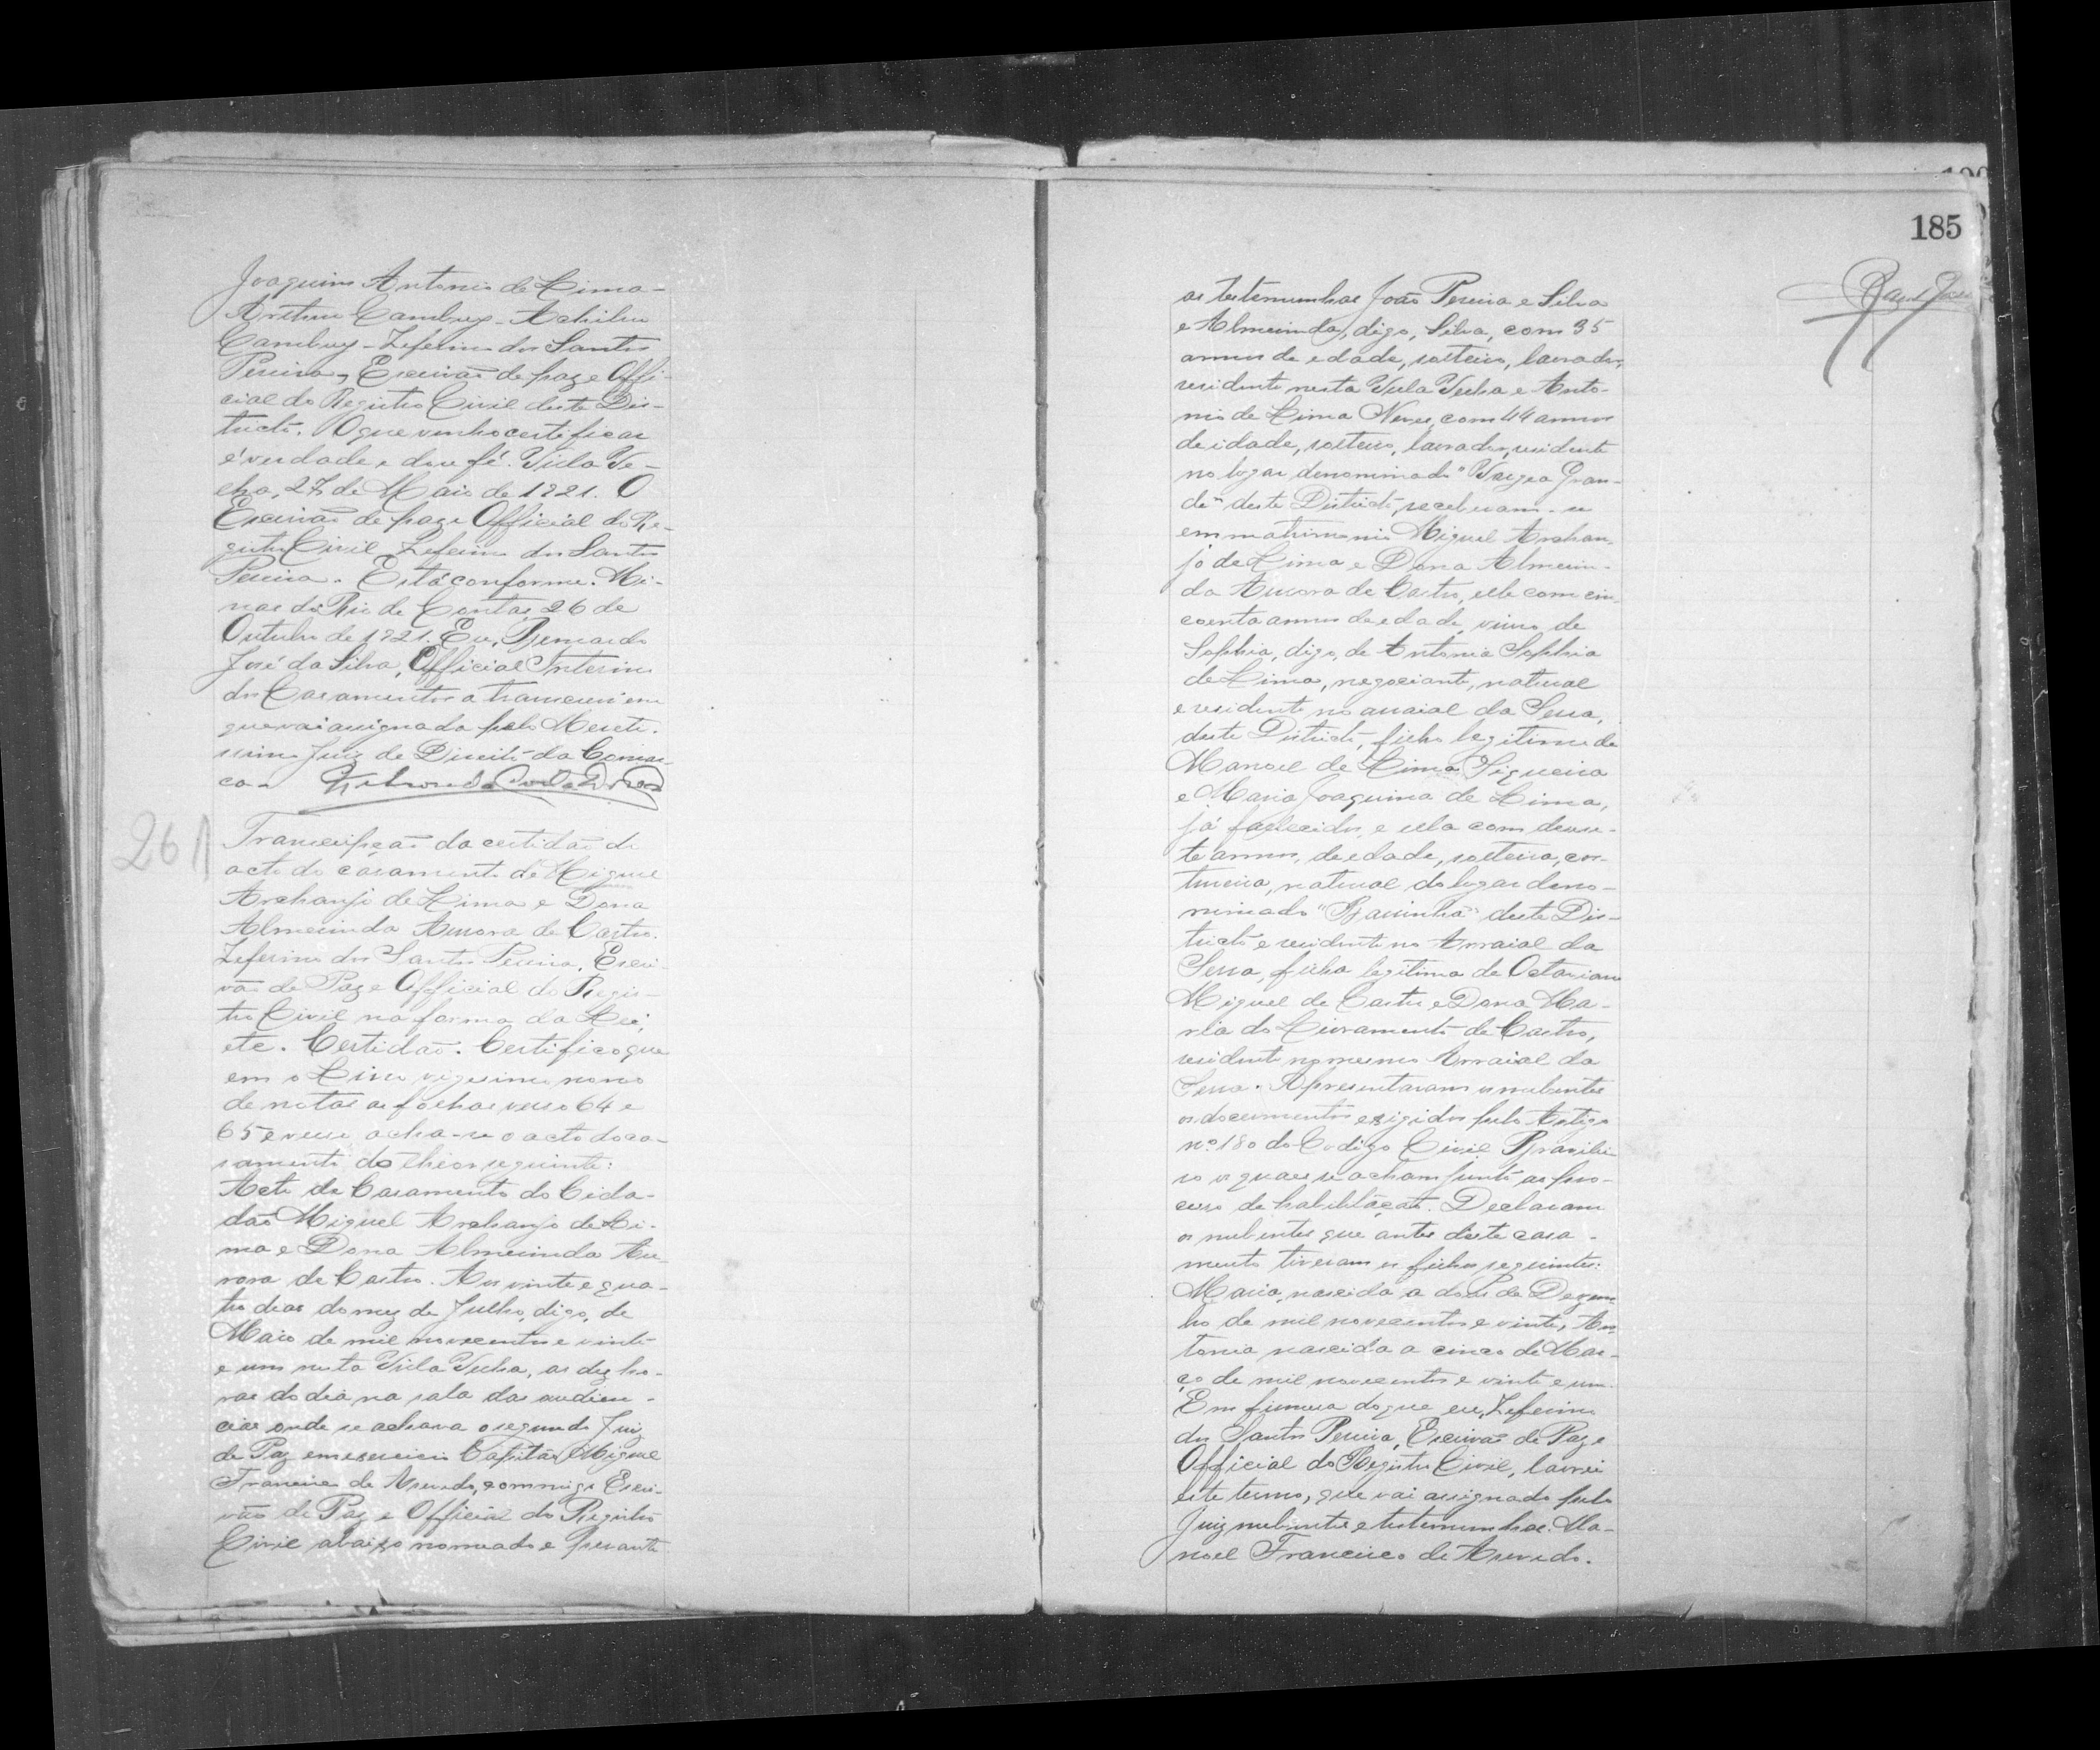 Joaquim Antonio de Lima -
Arthur Cambuy - Achilles
Cambuy - Zeferino dos Santos
Pereira, Escrivão de paz e Offi-
cial do Registro Civil deste Dis-
tricto. O que venho certificar
é verdade e dou fé. Villa Ve-
lha, 27 de Maio de 1921. O
Escrivão de paz e Official do Re-
gistro Civil Zeferino dos Santos
Pereira. Está conforme. Mi-
nas do Rio de Contas, 26 de
Outubro de 1921. Eu, Bernardo
José da Silva, Official Interino
dos Casamentos a transcrevi em
que vai assignada pelo Mereti-
ssimo Juiz de Direito da Comar-
ca -
261
Transcripção da certidão do
acto do casamento de Miguel
Archanjo de Lima e Dona
Almerinda Aurora de Castro.
Zeferino dos Santos Pereira, Escri-
vão de Paz e Official do Regis-
tro Civil na forma da Lei,
etc. Certidão. Certifico que
em o Livro vigesimo nono
de notas as folhas verso 64 e
65 e verso acha-se o acto do ca-
samento do theor seguinte:
Acto do Casamento do Cida-
dão Miguel Archanjo de Li-
ma e Dona Almerinda Au-
rora de Castro. Aos vinte e qua-
tro dias do mez de Julho, digo, de
Maio de mil novecentos e vinte
e um nesta Villa Velha, as dez ho-
ras do dia na sala das audien-
cias onde se achava o segundo Juiz
de Paz em exercicio Capitão Miguel
Francisco de Asevedo, commigo Escri-
vão de Paz e Official do Registro
Civil abaixo nomeado e perante
185
as testemunhas João Pereira e Silva
e Almerinda, digo, Silva, com 35
annos de edade, solteiro, lavrador,
residente nesta Villa Velha e Anto-
nio de Lima Neves, com 44 annos
de idade, solteiro, lavrador, residente
no logar denominado "Vargea Gran-
de" deste Districto, receberam-se
em matrimonio Miguel Archan-
jo de Lima e Dona Almerin-
da Aurora de Castro, elle com cin-
coenta annos de edade, viuvo de
Sophia, digo, de Antonia Sophia
de Lima, negociante, natural
e residente no arraial da Serra,
deste Districto, filho legitimo de
Manoel de Lima Siqueira
e Maria Joaquina de Lima,
já fallecidos, e ella com deze-
te annos, de edade, solteira, cos-
tureira, natural do lugar deno-
minado "Barrinha" deste Dis-
tricto e residente no Arraial da
Serra, filha legitima de Octaviano
Miguel de Castro e Dona Ma-
ria do Livramento de Castro,
residente no mesmo Arraial da
Serra. Apresentaram os nubentes
os documentos exigidos pelo Artigo
nº 180 do Codigo Civil Brazilei-
ro os quaes se acham junto ao pro-
cesso de habilitação. Declaram
os nubentes que antes deste casa-
mento tiveram os filhos seguintes:
Maria, nascida a dois de Dezem-
bro de mil novecentos e vinte, An-
tonia nascida a cinco de Mar-
ço de mil novecentos e vinte e um.
Em firmeza do que eu, Zeferino
dos Santos Pereira, Escrivão de Paz e
Official do Registro Civil, lavrei
este termo, que vai assignado pelo
Juiz nubentes e testemunhas. Ma-
noel Francisco de Asevedo.